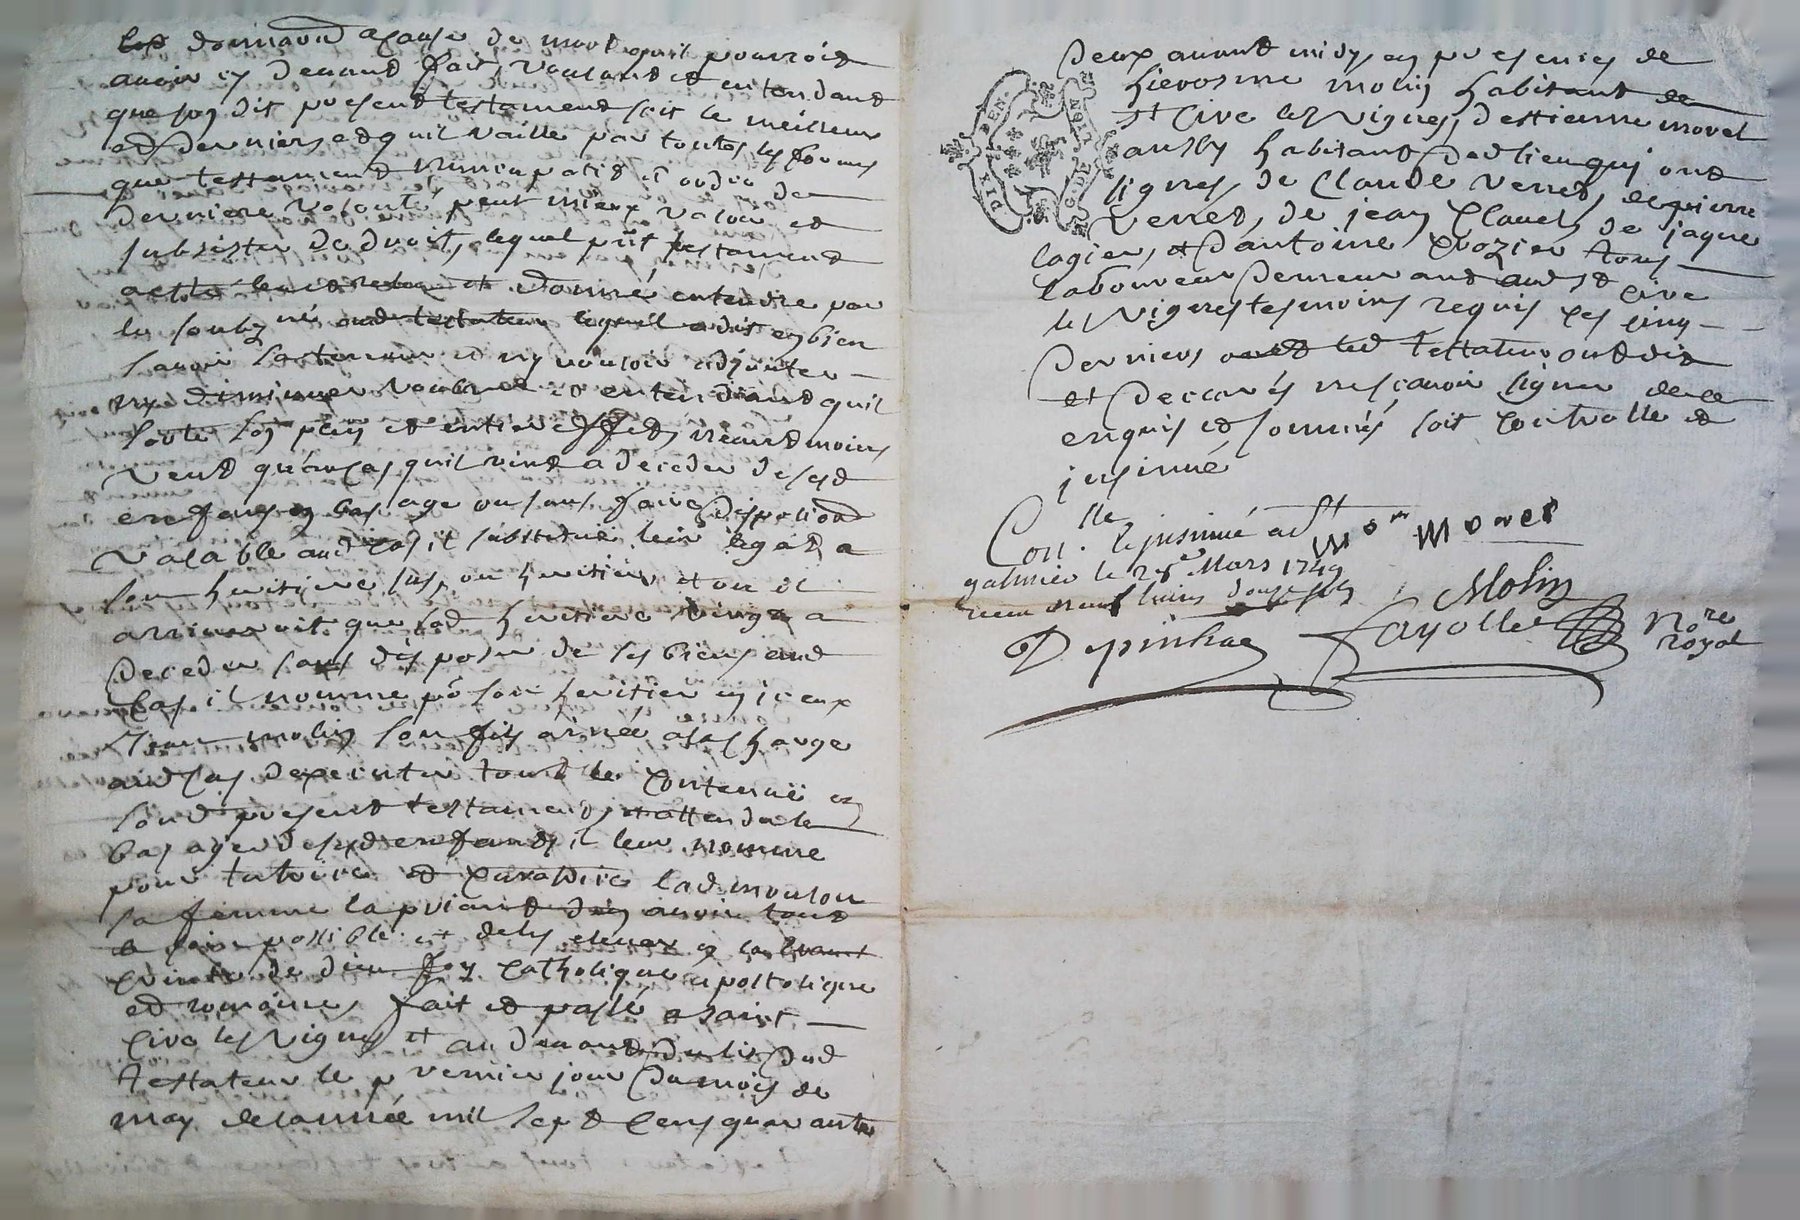 donnaõn acause de mort quil pourroit
avoir cy devant fait, voulant et entendant
que son dit present testament soit le meilleur
et dernier et quil vaille par toutes les formes
que testament nuncupatif et ordre de
derniere volonté peut mieux valoir et
subsister de droit, lequel pñt testament
donné entendre par
le soubzné aud testateur lequel a dit en bien
savoir la teneur et ny vouloir adjouter
ny diminuer voulant et entendant quil
sorte son plein et entier effet, neantmoins
veut qu'en cas quil vint a deceder desesd
enfans en bas age ou sans faire disposiõn
valable aud cas il substituë leur legat a
son heritiere sus ou heritiers et ou il
arriveroit que lad heritiere vinge a
deceder sans disposer de ses biens aud
cas il nomme pr son heritier en iceux
molin son fils ainée a la charge
aud cas dexecuter tout le contenuë en
sond present testament, et attendu le
bas age desesd enfants, il leur nomme
pour tutrice et curatrice lad mouton
sa femme la priant d'en avoir tout
le soin possible et de les elever en la
crainte de dieu foy catholique apostolique
et romaine, fait et passé a saint
Cire les Vignes et au devant du lit dud
testateur le premier jour du mois de
may de lannée mil sept cens quarante
deux avant midy, en presences de
hierosme molin habitant de
St Cire les Vignes, d'estienne morel
aussy habitant dud lieu qui ont
signes, de Claude verret, de pierre
verret, de jean Clavel, de jaque
lagier, et d'antoine crozier tous
laboureur demeurant aud St Cire
les Vignes tesmoins requis les cinq
derniers avec led testateur ont dit
et declarés ne sçavoir signer de ce
enquis et sommés, soit controlle et
jnsinué
DIXIE DEN. G. DE LION
Con.lle et jnsinué a St Mor Morel
galmier le 2 mars 1749
receu neuf livres douze sols Molin
Depinhac Fayolle Nore
royal